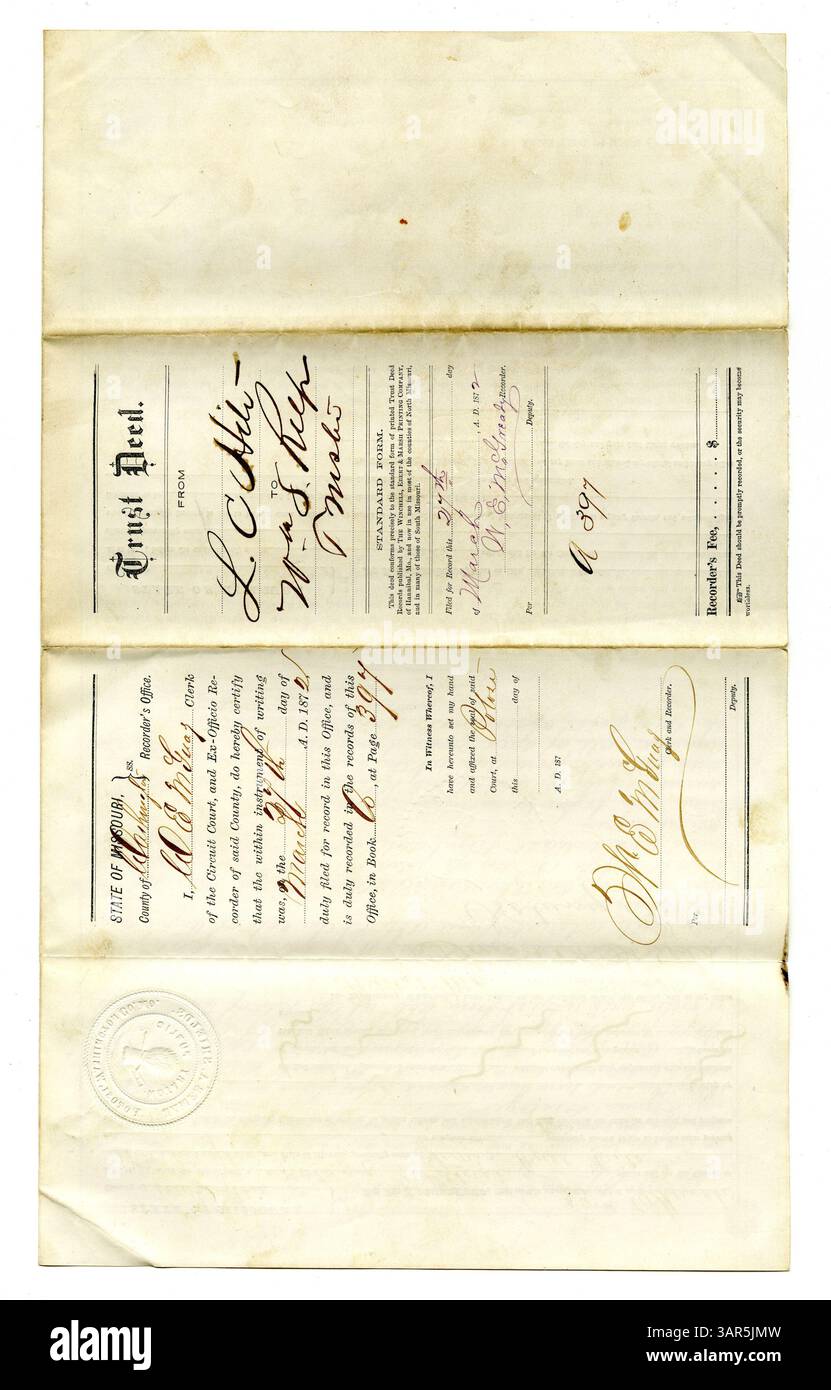 Trust Deed.
FROM
L. C.
TO
Wm S. Relf
Trustee
STANDARD FORM.
This deed conforms precisely to the standard form of printed Trust Deed
Records published by THE WINCHELL, EBERT & MARSH PRINTING COMPANY,
of Hannibal, Mo., and now in use in most of the counties of North Missouri,
and in many of those of South Missouri.
Filed for Record this 27th day
of March, A. D. 1872
Recorder.
Per Deputy.
A 397
Recorder's Fee, . . . . . . $
This Deed should be promptly recorded, or the security may become
worthless.
STATE OF MISSOURI,
ss.
County of Washington Recorder's Office.
I, Clerk
of the Circuit Court, and Ex-Officio Re-
corder of said County, do hereby certify
that the within instrument of writing
was, on the 27th day of
March A. D. 1872
duly filed for record in this Office, and
is duly recorded in the records of this
Office, in Book , at Page 397
In Witness Whereof, I
have hereunto set my hand
and affixed the seal of said
Court, at Potosi
this day of
A. D. 187
Clerk and Recorder,
Per Deputy.
alamy
Image ID: 3AR5JMW
www.alamy.com